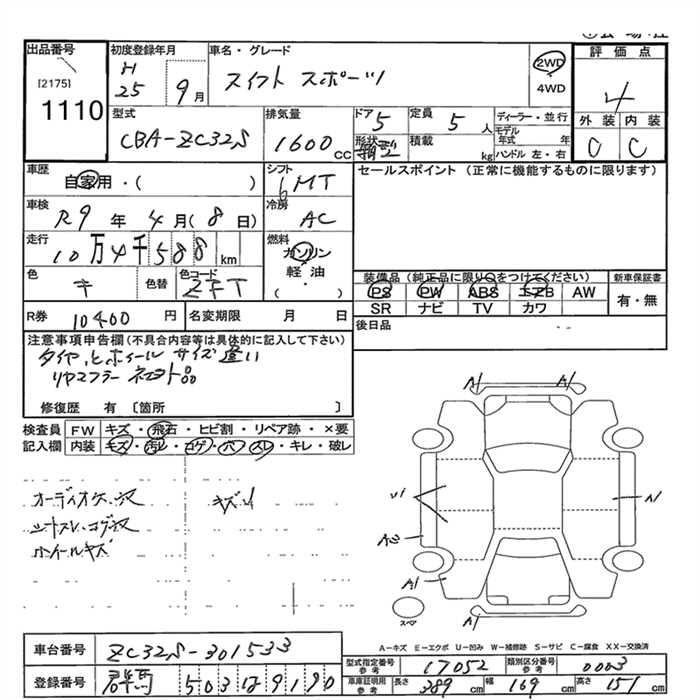 出品番号
[2175]
1110
初度登録年月
H 25 9月
車名・グレード
スイフト スポーツ
2WD
4WD
評価点
4
型式
CBA-ZC32S
排気量
1600 CC
ドア 5
形状 箱型
定員 5 人
積載 kg
ディーラー・並行
モデル年式 年
ハンドル 左・右
外装 内装
C C
車歴
自家用・( )
シフト
6MT
セールスポイント (正常に機能するものに限ります)
車検
R9年 4月(8日)
冷房
AC
走行
10万4千588km
燃料
ガソリン
軽油・
( )
色 キ 色替
色コード ZFT
装備品 (純正品に限り○をつけてください) 新車保証書
PS PW ABS エアB AW
有・無
SR ナビ TV カワ
R券 10400 円
名変期限 月 日
後日品
注意事項申告欄(不具合内容等は具体的に記入して下さい)
タイヤ、ヒホイール サイズ違い
リヤマフラー ネオト品
修復歴 有 〔箇所 〕
検査員 FW キズ・飛石・ヒビ割・リペア跡・×要
記入欄 内装 キズ・汚レ・コゲ・穴・スレ・キレ・破レ
オーディオケース穴
キズ小
シートスレ、コゲ穴
ホイールキズ
A1 A1
U1
A1
A2
A1
A1
スペア
A-キズ E-エクボ U-凹み W-補修跡 S-サビ C-腐食 XX-交換済
車台番号 ZC32S-301533
登録番号 群馬 503 は 9190
型式指定番号 参考 17052
類別区分番号 参考 0003
車庫証明用 参考 長さ 389 cm 幅 169 cm 高さ 151 cm